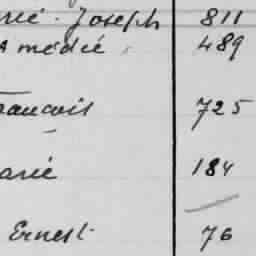 rié. Joseph 811
Amédié 489
rancois 725
arie 184
Ernest 76